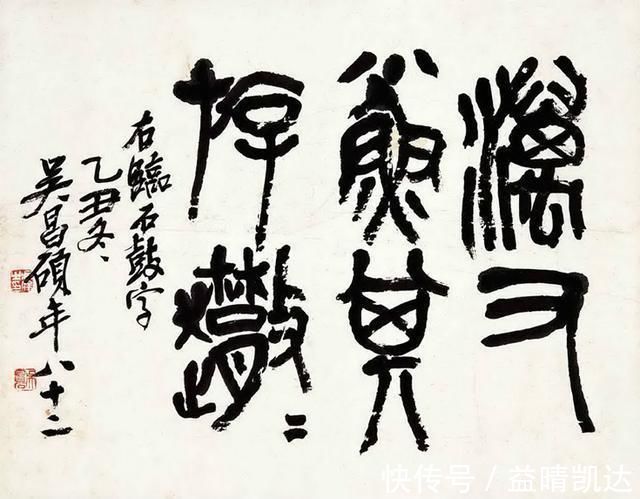 澫又
小魚其
斿
右臨石鼓字
乙丑冬、
吳昌碩年八十二
快传号／益晴凯达